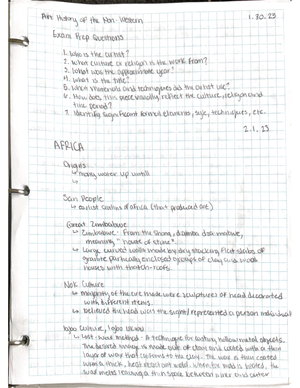 Art History of the Non-Western 1.30.23
Exam Prep Questions
1. Who is the artist?
2. What culture or religion is the work from?
3. What was the approximate year?
4. What is the title?
5. What materials and techniques did the artist use?
6. How does this piece visually reflect the culture, religion and
time period?
7. Identify significant formal elements, style, techniques, etc.
2.1.23
AFRICA
Origins:
San People
↳ earliest of Africa (that produced art)
Great Zimbabwe
↳ Zimbabwe: From the Shona,
meaning "house of stone"
↳ Large curved walls made by dry stacking flat slabs of
granite particularly enclosed groups of clay and wood
houses with thatch-roofs.
Nok Culture
↳ majority of the were sculptures of head decorated
with different items.
↳ believed the head was the represented a person individual
Igbo Culture, Igbo Ukwu
↳ lost-wax method: A technique for casting hollow metal objects.
The is made out of clay and coated with a thin
layer of wax that The wax is then coated
with a thick, heat resistant mold. When the mold is heated, the
wax melts leaving a thin space between outer and outer